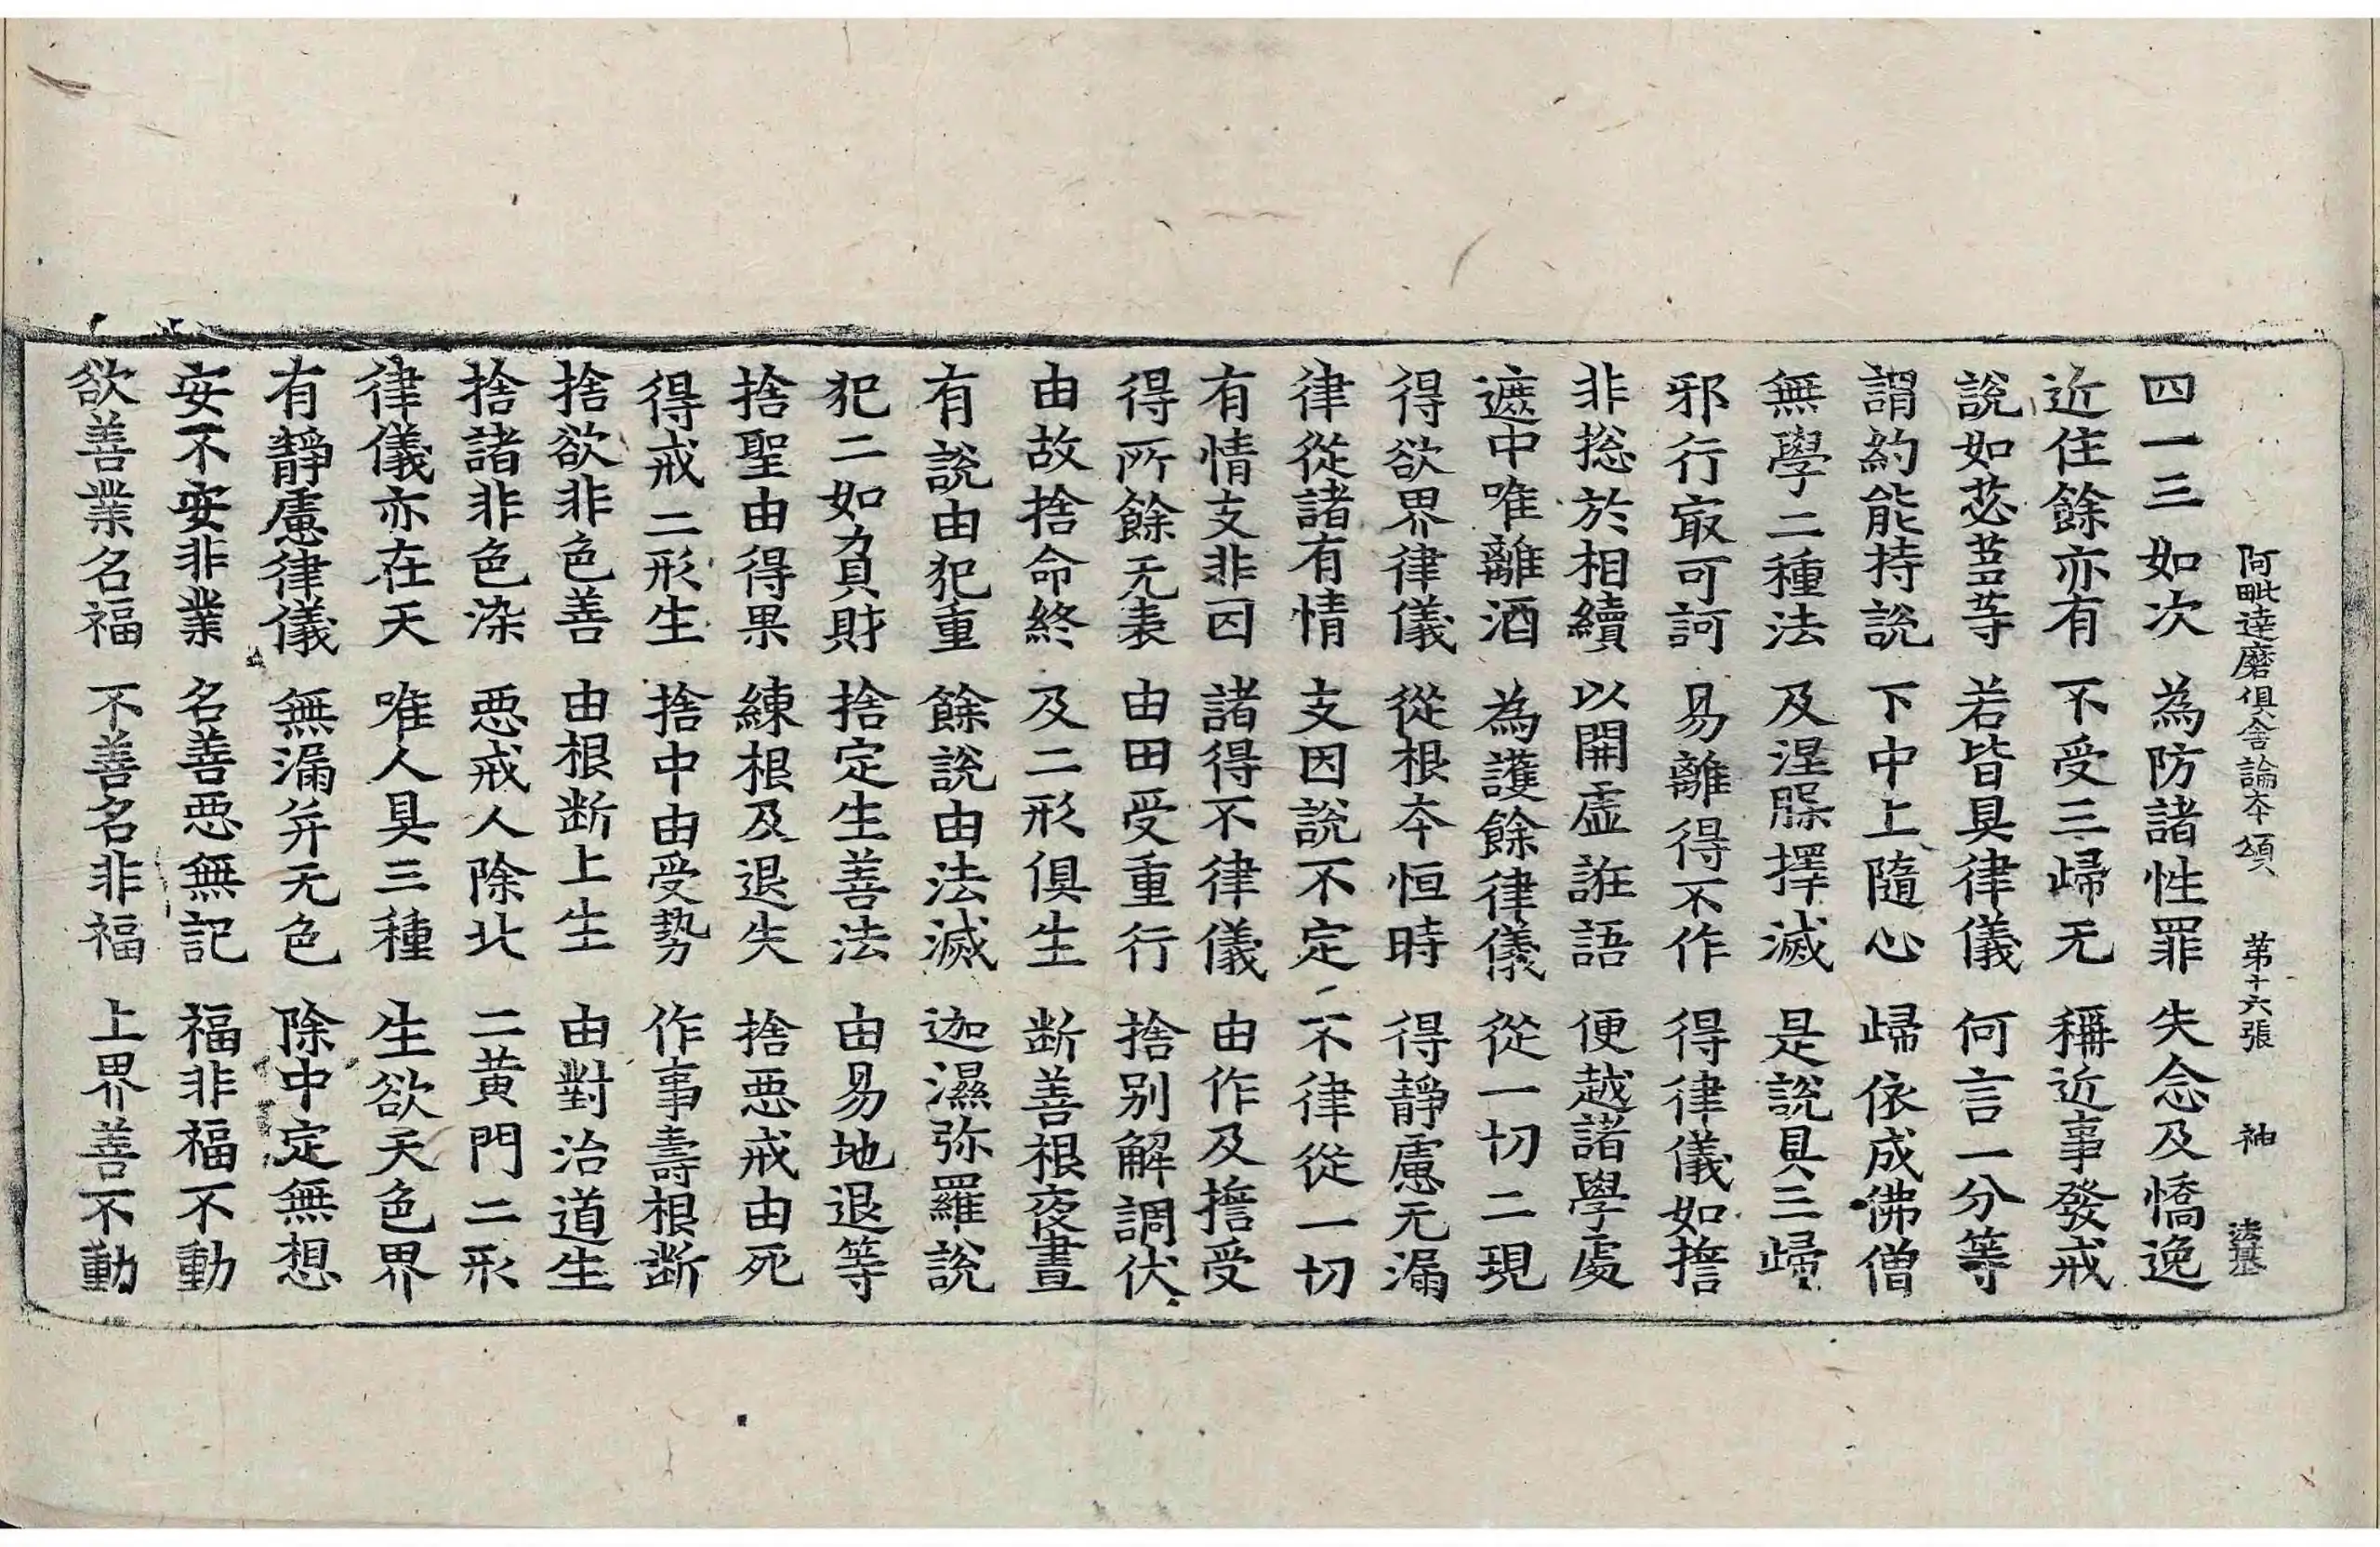 阿毗達磨俱舍論本頌 第十六張 神 法基
四一三如次 為防諸性罪 失念及憍逸
近住餘亦有 不受三歸无 稱近事發戒
說如苾蒭等 若皆具律儀 何言一分等
謂約能持說 下中上隨心 歸依成佛僧
無學二種法 及涅槃擇滅 是說具三歸
邪行㝡可訶 易離得不作 得律儀如擔
非捴於相續 以開虛誑語 便越諸學處
遮中唯離酒 為護餘律儀 從一切二現
得欲界律儀 從根本恒時 得靜慮无漏
律從諸有情 支因說不定 不律從一切
有情支非因 諸得不律儀 由作及擔受
得所餘无表 由田受重行 捨別解調伏
由故捨命終 及二形俱生 斷善根夜晝
有說由犯重 餘說由法滅 迦濕弥羅說
犯二如負財 捨定生善法 由易地退等
捨聖由得果 練根及退失 捨惡戒由死
得戒二形生 捨中由受勢 作事壽根斷
捨欲非色善 由根斷上生 由對治道生
捨諸非色染 惡戒人除北 二黃門二形
律儀亦在天 唯人具三種 生欲天色界
有靜慮律儀 無漏并无色 除中定無想
安不安非業 名善惡無記 福非福不動
欲善業名福 不善名非福 上界善不動